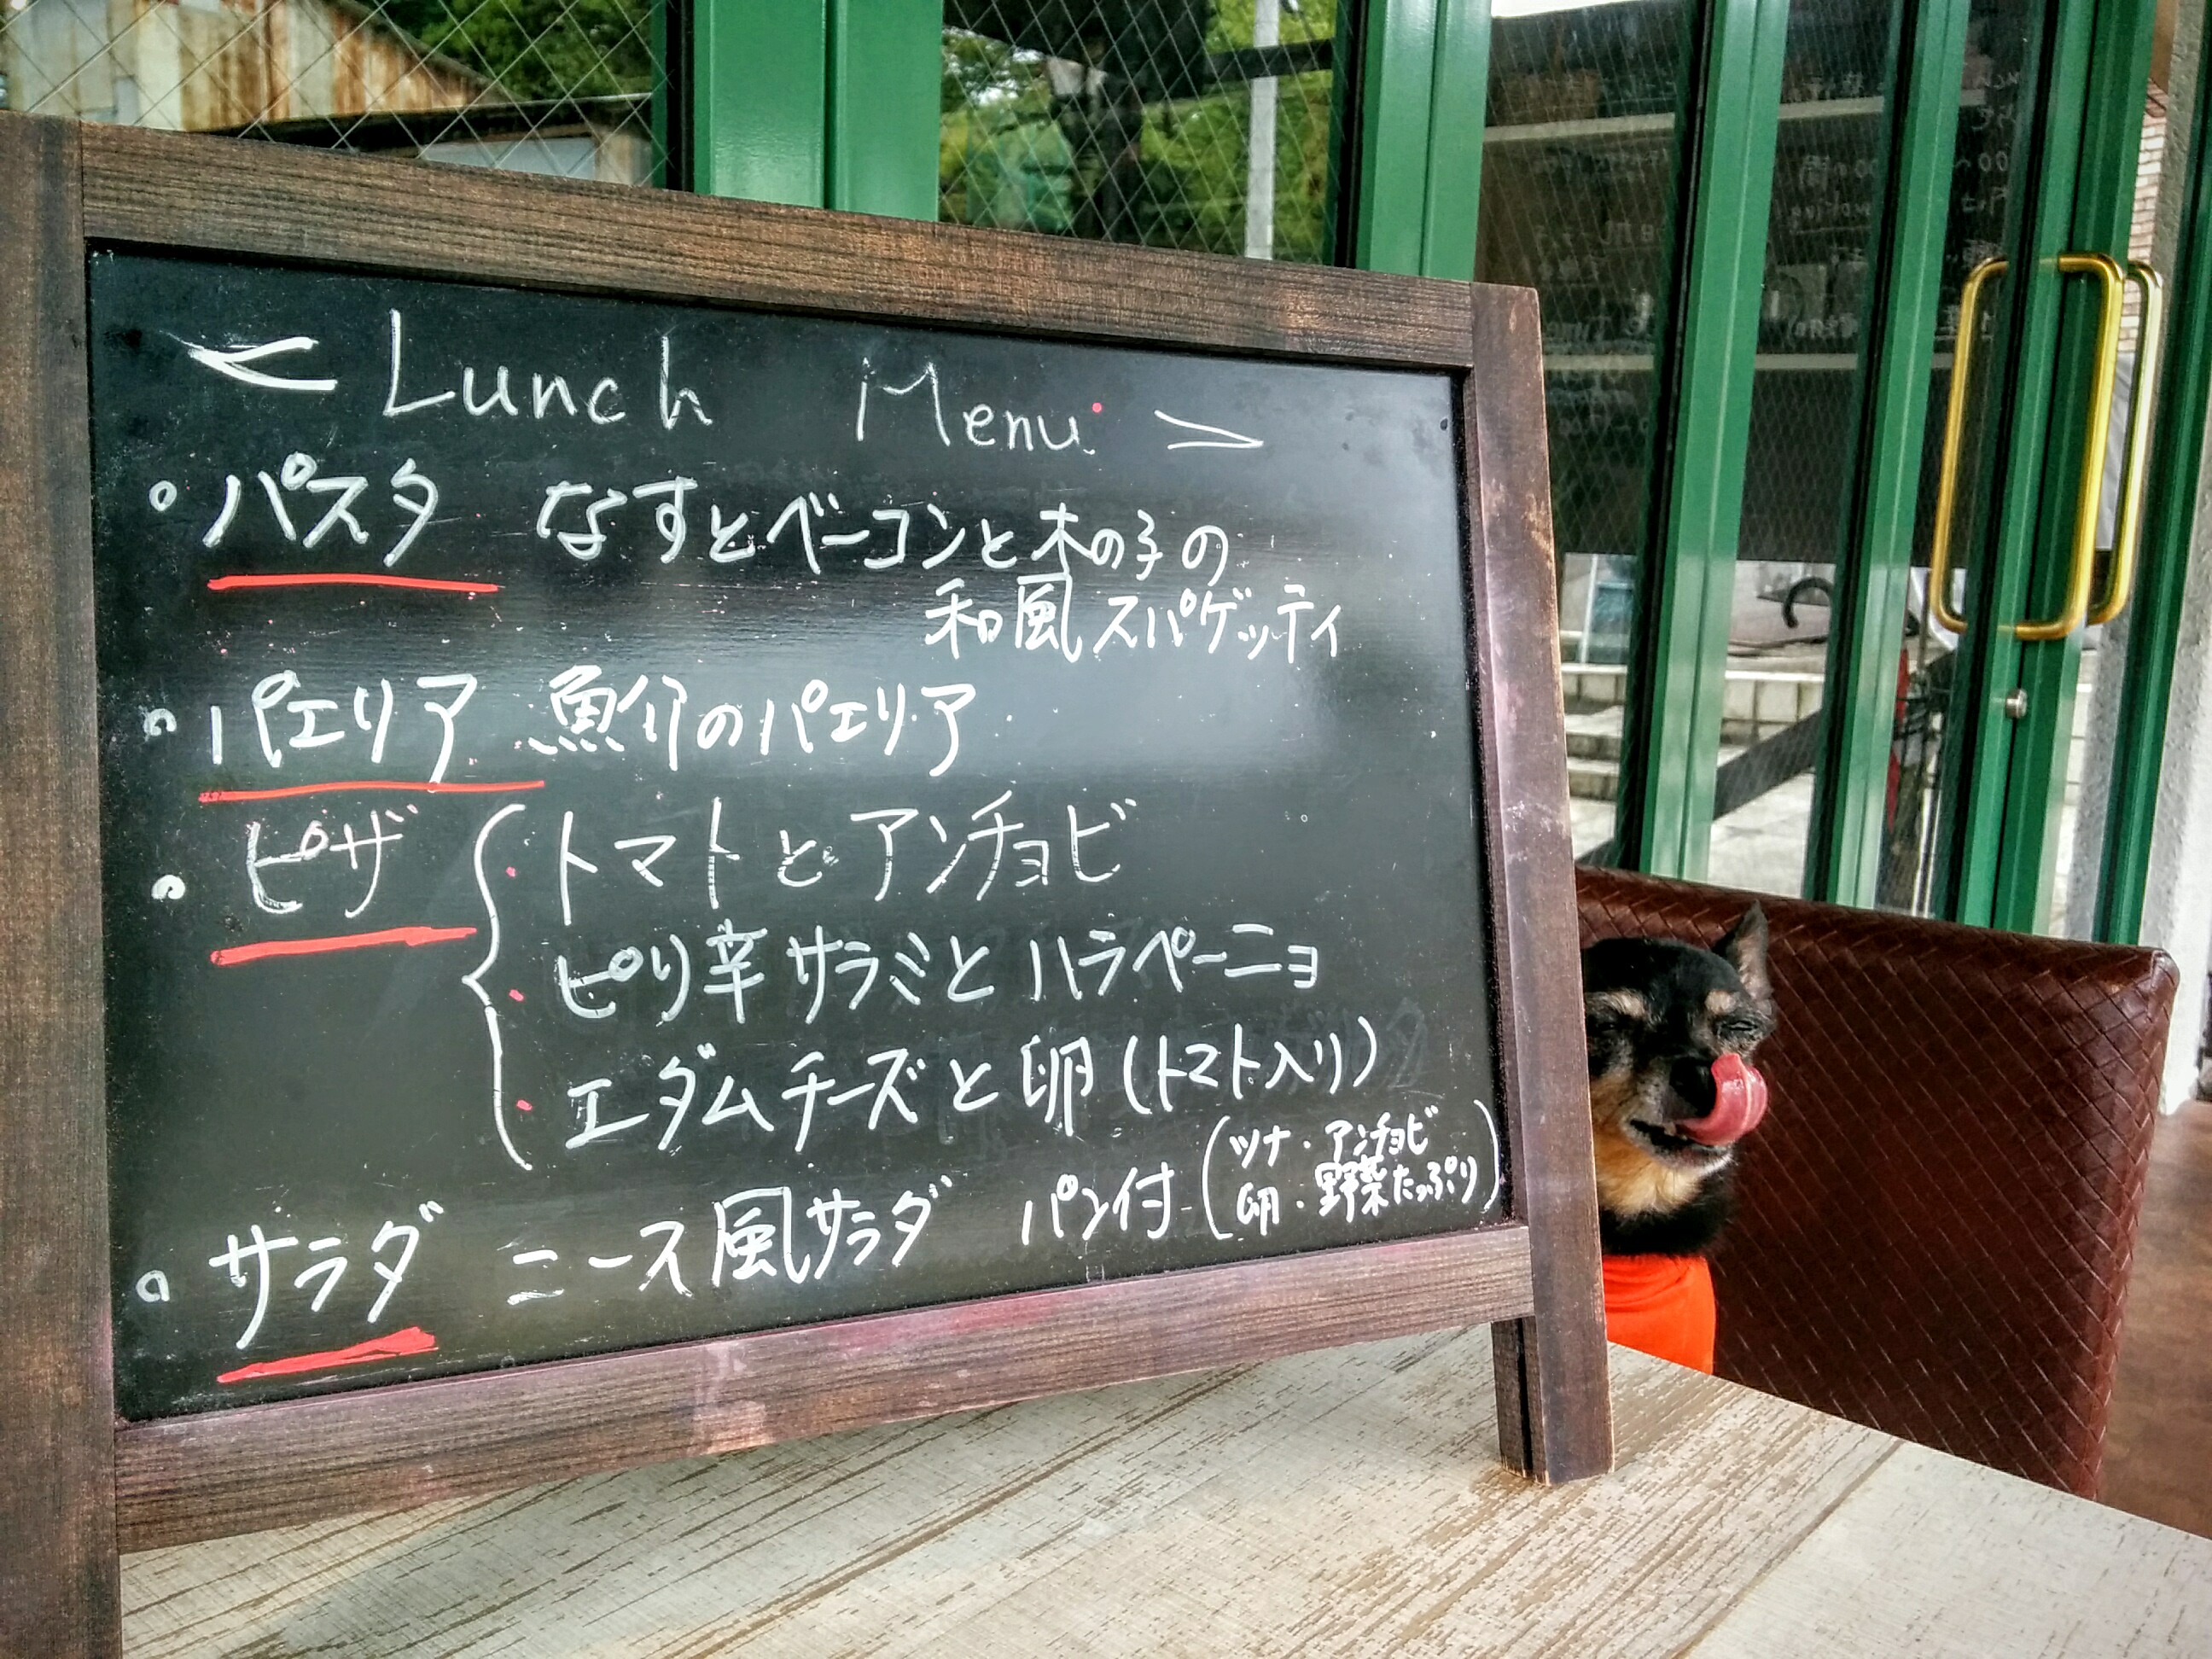 < Lunch Menu >
・パスタ なすとベーコンと木の子の
和風スパゲッティ
・パエリア 魚介のパエリア
・ピザ { ・トマトとアンチョビ
・ピリ辛サラミとハラペーニョ
・エダムチーズと卵(トマト入り)
・サラダ ニース風サラダ パン付 (ツナ・アンチョビ
卵・野菜たっぷり)